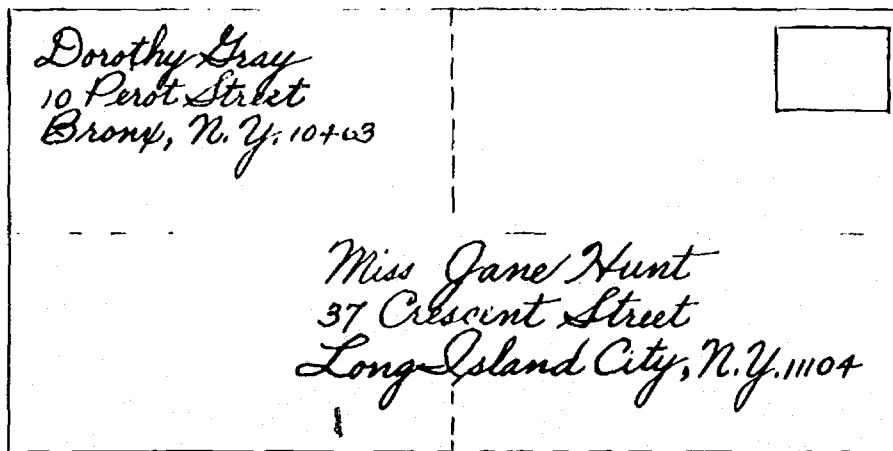 Dorothy Gray
10 Perot Street
Bronx, N.Y. 10463
Miss Jane Hunt
37 Crescent Street
Long Island City, N.Y. 11104